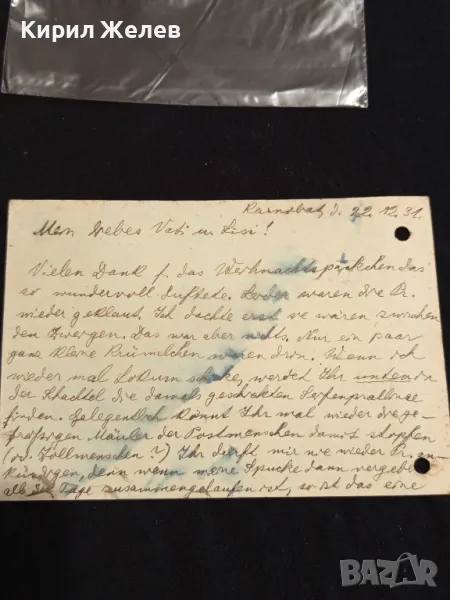 Кирил Желев
d. 22.12.31.
Mein liebes Vati u. Lisi!
Vielen Dank f. das Weihnachtspäckchen das
so wundervoll duftete. Leider waren die Pr.
wieder geklaut. Ich dachte erst sie wären zwischen
den Zwergen. Das war aber nichts. Nur ein paar
ganz kleine Krümelchen waren drin. Wenn ich
wieder mal Lokum schicke, werdet Ihr unten in
der Schachtel die damals geschickten Seifenpralinee
finden. Gelegentlich könnt Ihr mal wieder die ge-
frässigen Mäuler der Postmenschen damit stopfen
(od. Zollmenschen?) Ihr dürft mir nie wieder Pr. an-
kündigen, denn wenn meine Spucke dann vergebens
alle die Tage zusammengelaufen ist, so ist das eine
BAZAR
bg